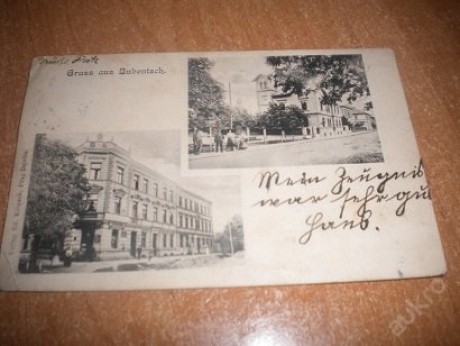 Gruss aus Bubentsch.
Mein Zeugnis
war sehr gut
Hans.
aukro